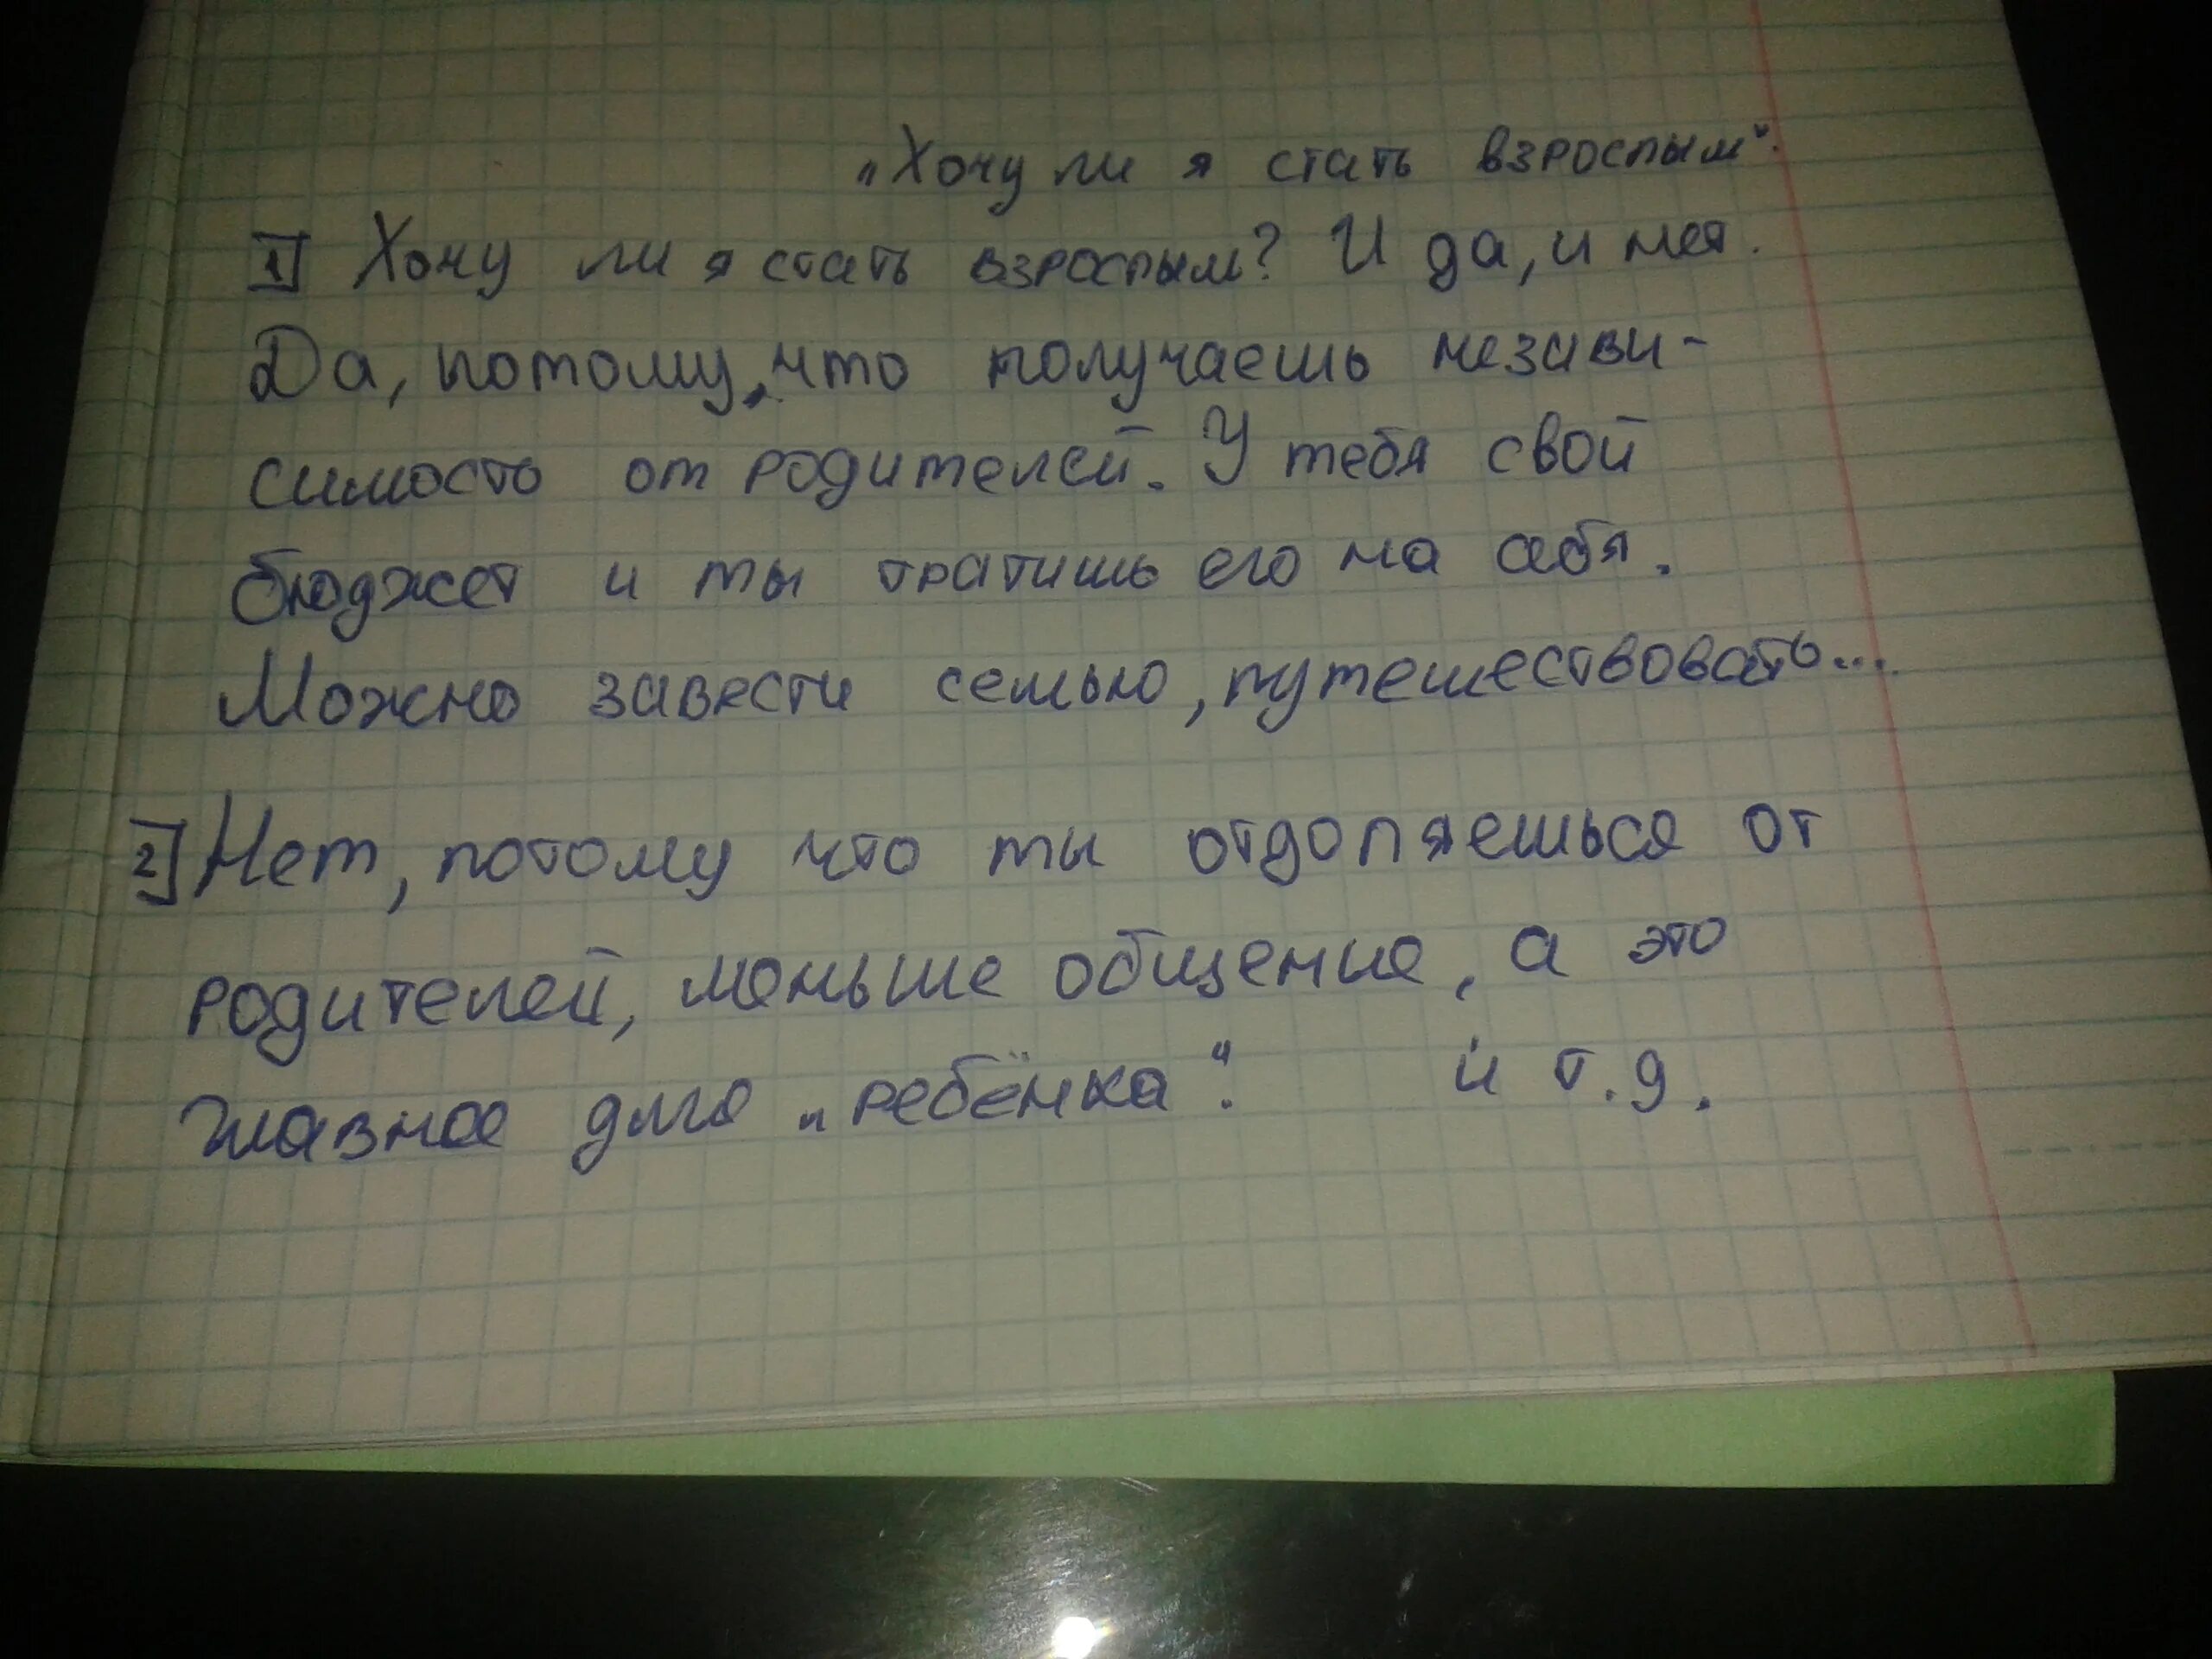 „Хочу ли я стать взрослым".
1) Хочу ли я стать взрослым? И да, и нет.
Да, потому, что получаешь незави-
симость от родителей. У тебя свой
бюджет и ты тратишь его на себя.
Можно завести семью, путешествовать...
2) Нет, потому что ты отдоляешься от
родителей, меньше общение, а это
главное для „ребёнка". и т.д.